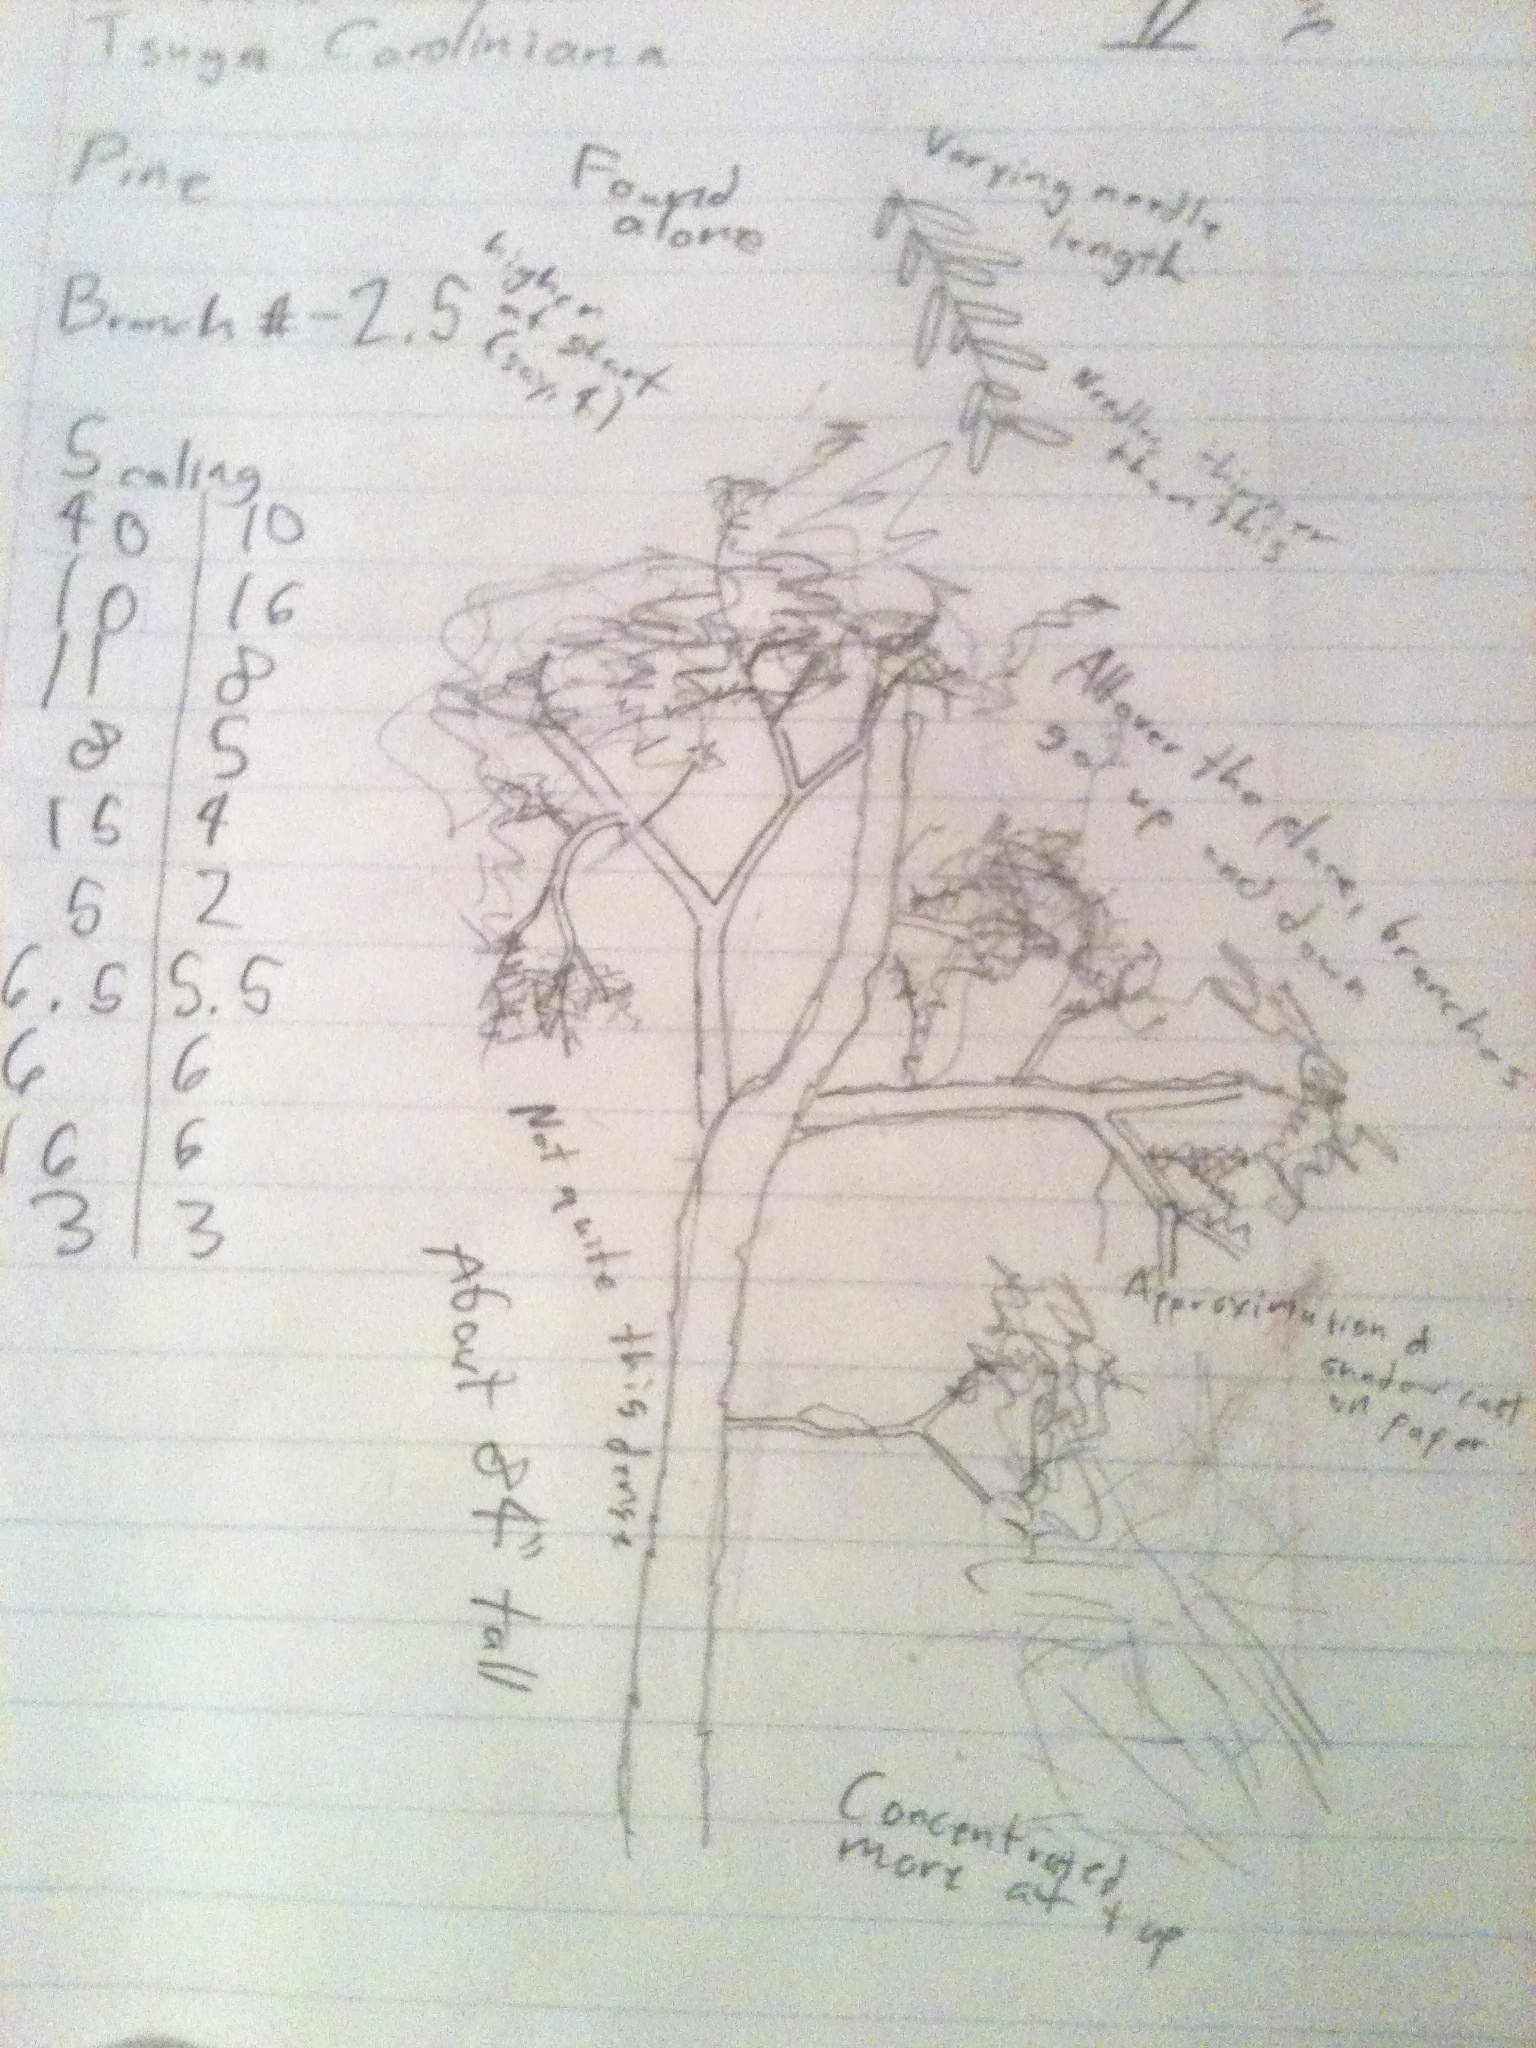 Tsuga Caroliniana
Pine
Found
alone
Varying needle
length
Branch # - 2.5
higher
at start
(say, 4)
Needles thinner
than this
Scaling
40 | 10
10 | 16
11 | 8
8 | 5
16 | 4
5 | 2
6.5 | 5.5
6 | 6
16 | 6
3 | 3
All over the place, branches
go up and down
Not quite this dense
About 84" tall
Approximation of
shadow cast
on paper
Concentrated
more at top